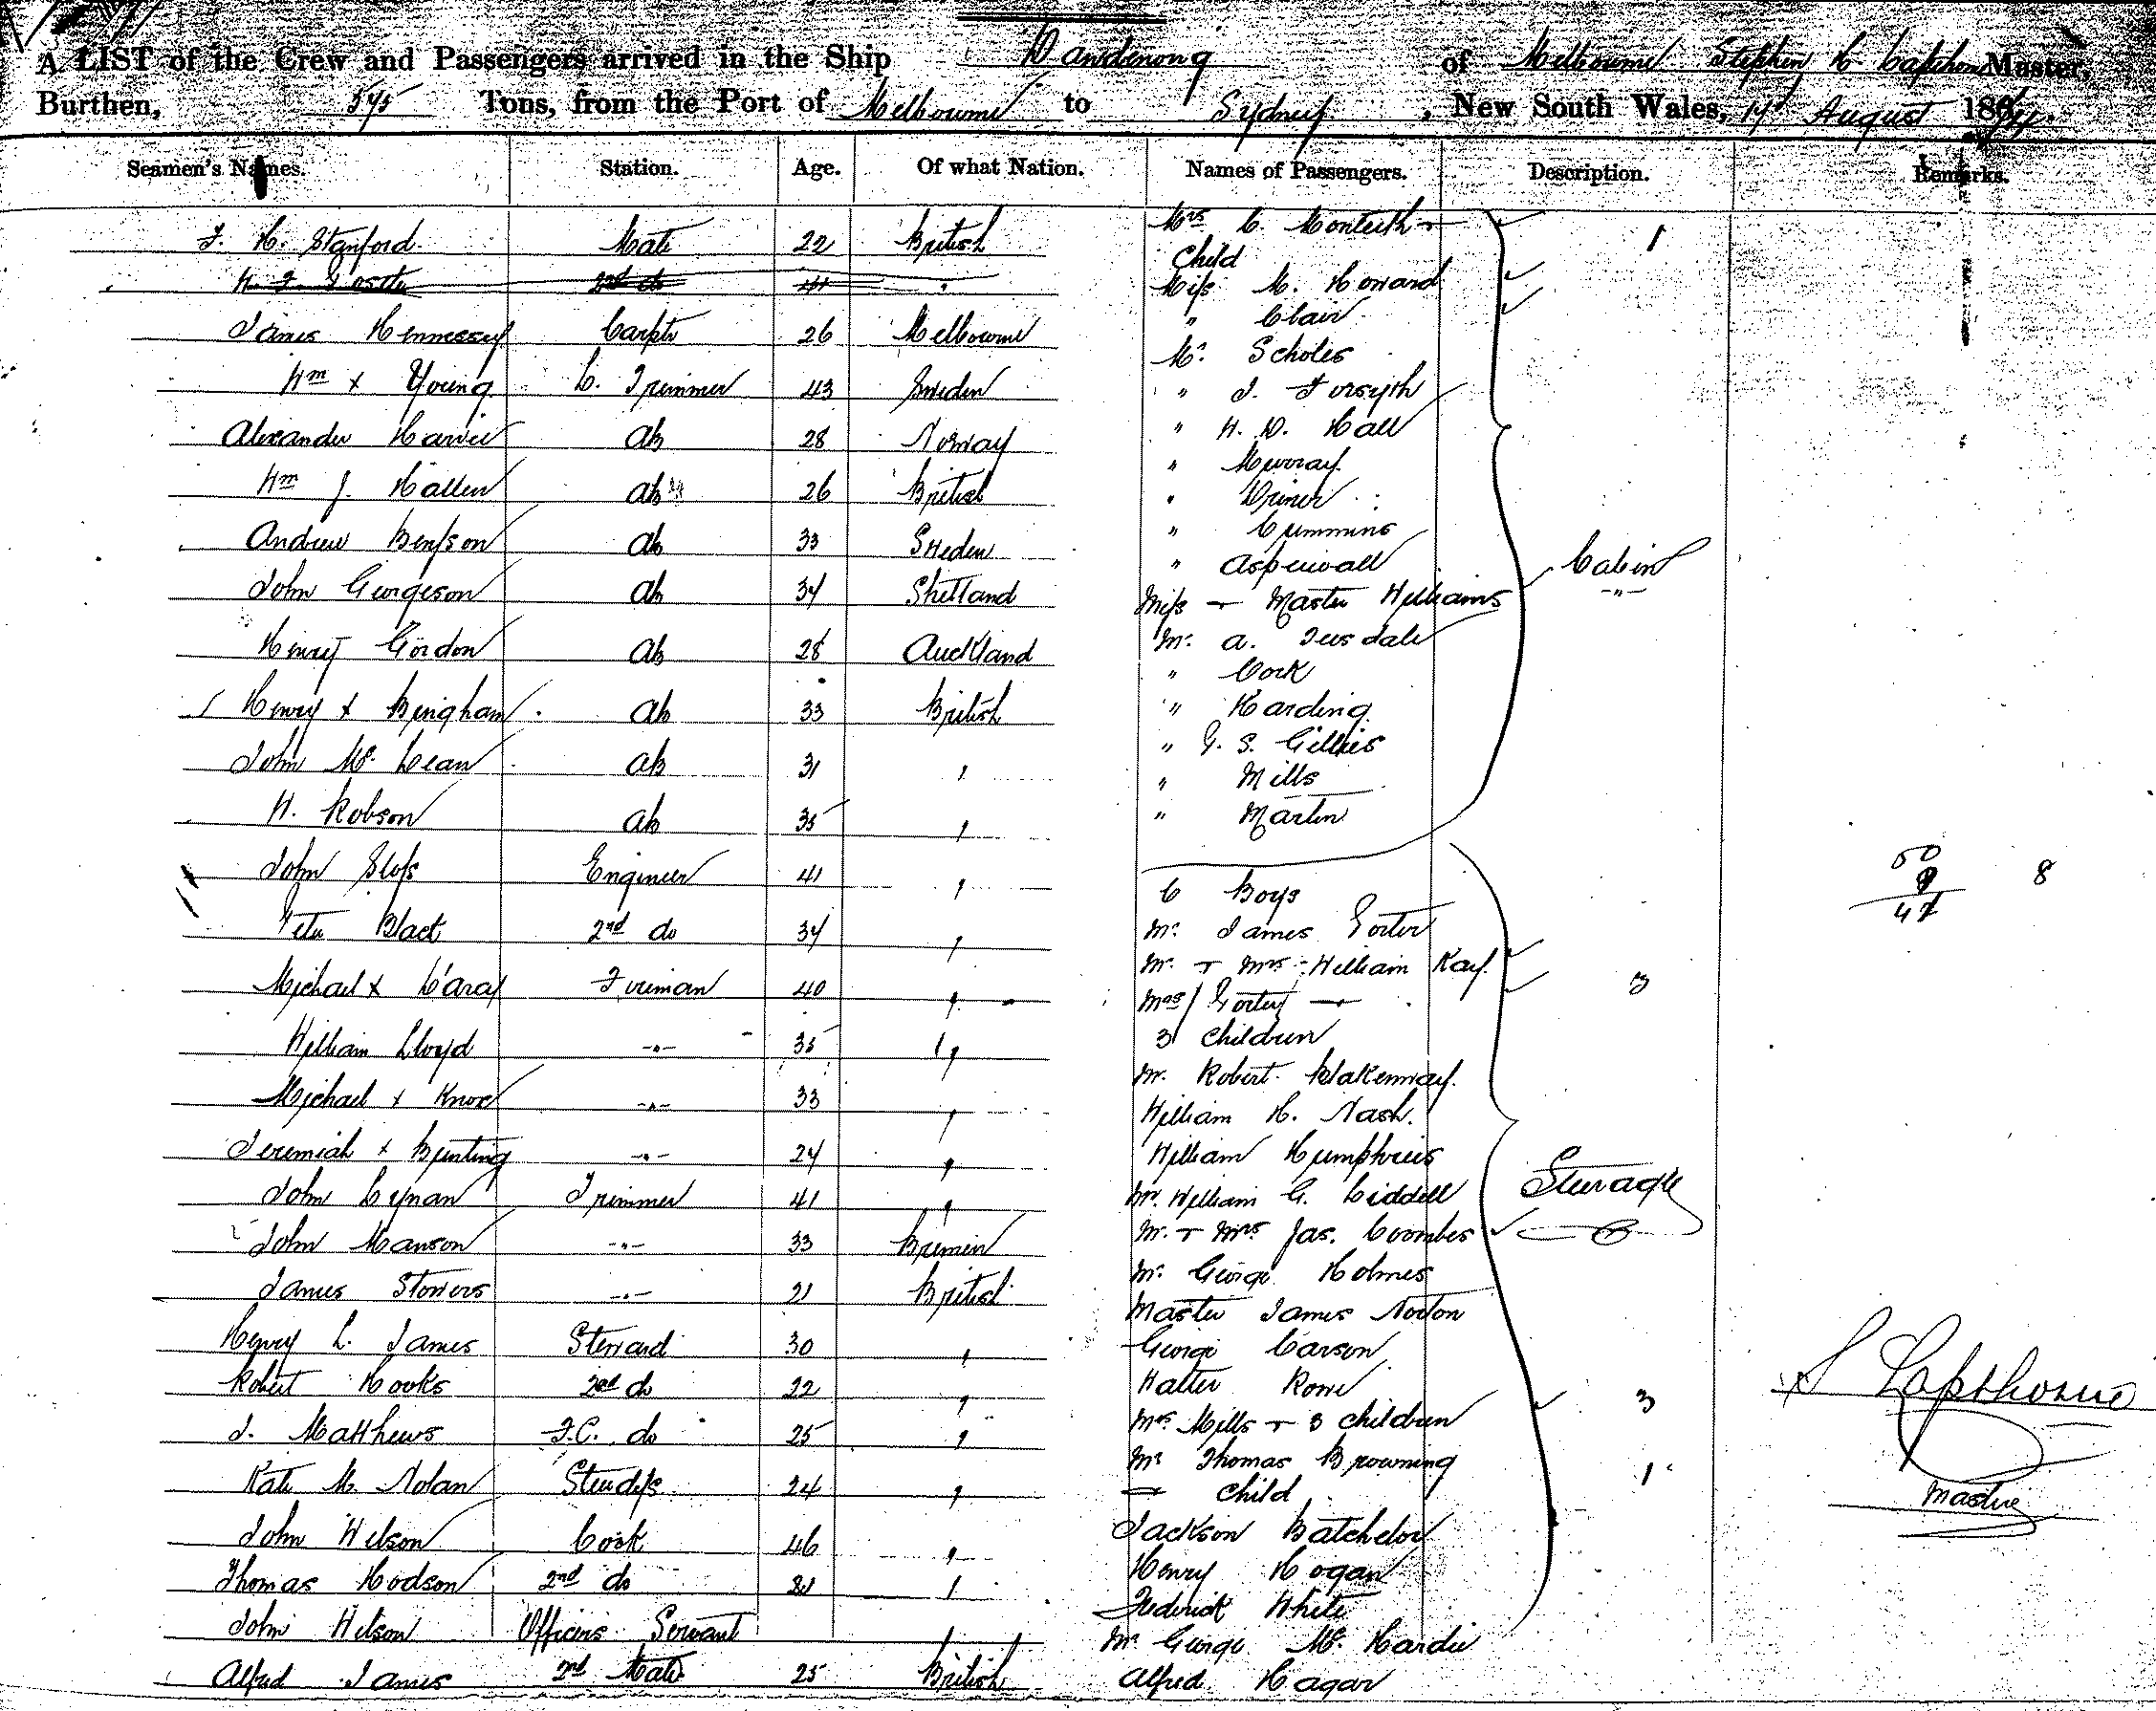 A LIST of the Crew and Passengers arrived in the Ship Dandenong of Melbourne Stephen Lapthorne Master,
Burthen, 575 Tons, from the Port of Melbourne to Sydney, New South Wales, August 18
Seamen's Names. Station. Age. Of what Nation. Names of Passengers. Description. Remarks.
Mrs C. Monteith + 1
J. H. Stanford Mate 22 British
Child
2nd do 41 "
Miss M. Howard
" Clair
James Hennessy Carptr 26 Melbourne
Mr. Scholes
Wm x Young C. Trimmer 43 Sweden
" J. Forsyth
Alexander Harvie AB 28 Norway
" H. D. Hall
" Murray
Wm J. Hallen AB 26 British
" Driner
" Cummins
Andrew Benson AB 33 Sweden
" Aspinwall Cabin
John Georgeson AB 34 Shetland
Miss + Master Williams -"-
Henry Gordon AB 28 Auckland
Mr. A. Teesdale
" Cock
Henry x Bingham AB 33 British
" Harding
" G. S. Gillies
John Mc. Lean AB 31 "
" Mills
H. Robson AB 35 "
" Martin
50
9 8
John Sloss Engineer 41 "
6 Boys
47
Peter Black 2nd do 34 "
Mr. James Porter
Mr. + Mrs William Kay.
Michael x Carey Fireman 40 "
Mrs Porter + 3
3 Children
William Lloyd -"- 35 "
Mr. Robert Blakenway.
Michael x Knox -"- 33 "
William H. Nash.
Jeremiah x Bunting -"- 24 "
William Humphries
John Cynan Trimmer 41 "
Mr. William G. Liddell Steerage
John Manson -"- 33 Bremen
Mr. + Mrs Jas. Coombes
Mr. George Holmes
James Stowers -"- 21 British
Master James Norton
Henry L. James Steward 30 "
George Carson
S Lapthorne
Robert Hooks 2nd do 22 "
Walter Rowe
J. Matthews F.C. do 25 "
Mrs. Mills + 3 children 3
Mr Thomas Browning
Kate M. Nolan Stewdss 24 "
+ Child 1
Master
John Wilson Cook 46 "
Jackson Batchelor
Henry Hogan
Thomas Hodson 2nd do 21 "
Frederick White
John Wilson Officers Servant "
Mr George Mc. Hardie
Alfred James 2nd Mate 25 British
Alfred Hagar